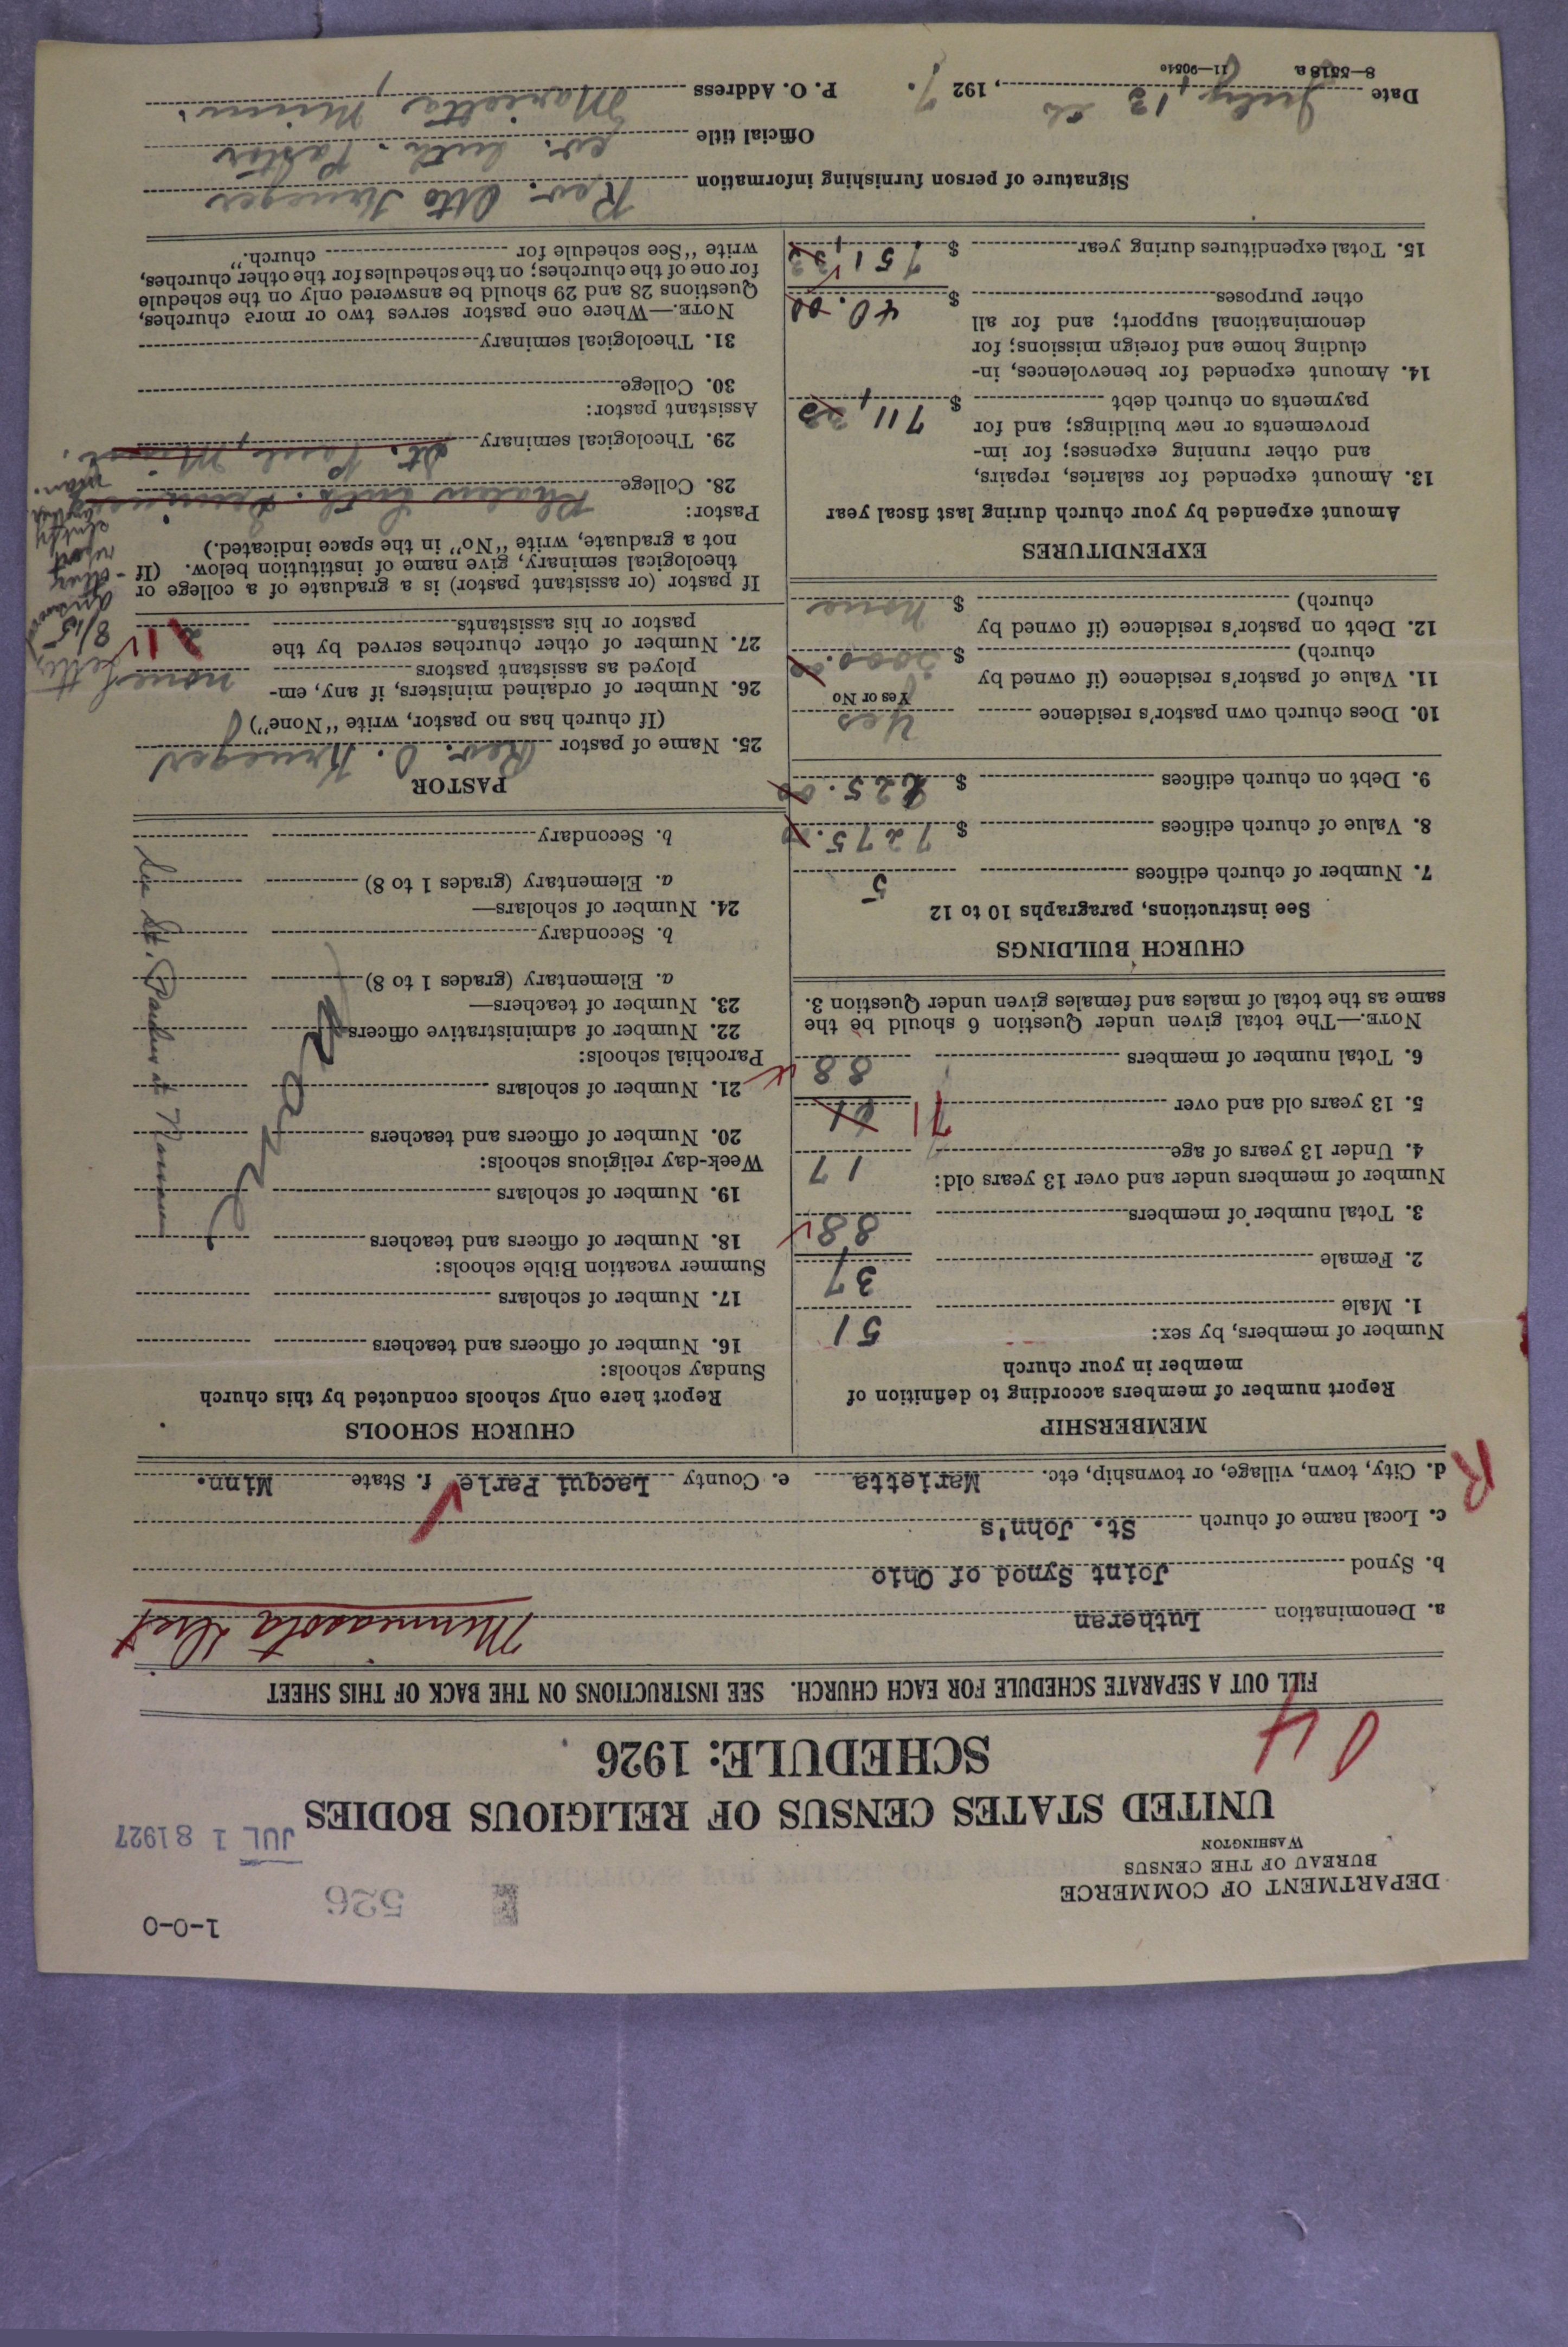 1-0-0
526
DEPARTMENT OF COMMERCE
BUREAU OF THE CENSUS
WASHINGTON
JUL 18 1927
UNITED STATES CENSUS OF RELIGIOUS BODIES
SCHEDULE: 1926
FILL OUT A SEPARATE SCHEDULE FOR EACH CHURCH. SEE INSTRUCTIONS ON THE BACK OF THIS SHEET
a. Denomination Lutheran Minneasota Dist
b. Synod Joint Synod of Ohio
c. Local name of church St. John's
d. City, town, village, or township, etc. Marietta e. County Lacqui Parle f. State Minn.
R
MEMBERSHIP
Report number of members according to definition of
member in your church
Number of members, by sex:
1. Male 51
2. Female 37
3. Total number of members 88
Number of members under and over 13 years old:
4. Under 13 years of age 17
5. 13 years old and over 71
6. Total number of members 88
NOTE.—The total given under Question 6 should be the
same as the total of males and females given under Question 3.
CHURCH BUILDINGS
See instructions, paragraphs 10 to 12
7. Number of church edifices 5
8. Value of church edifices $ 7275.00
9. Debt on church edifices $ 225.00
10. Does church own pastor's residence Yes
Yes or No
11. Value of pastor's residence (if owned by
church) $ 3000.00
12. Debt on pastor's residence (if owned by
church) $ none
EXPENDITURES
Amount expended by your church during last fiscal year
13. Amount expended for salaries, repairs,
and other running expenses; for im-
provements or new buildings; and for
payments on church debt $ 711
14. Amount expended for benevolences, in-
cluding home and foreign missions; for
denominational support; and for all
other purposes $ 40.00
15. Total expenditures during year $ 751
CHURCH SCHOOLS
Report here only schools conducted by this church
Sunday schools:
16. Number of officers and teachers
17. Number of scholars
Summer vacation Bible schools:
18. Number of officers and teachers
19. Number of scholars
Week-day religious schools:
20. Number of officers and teachers
21. Number of scholars
Parochial schools:
22. Number of administrative officers
23. Number of teachers—
a. Elementary (grades 1 to 8)
b. Secondary
24. Number of scholars—
a. Elementary (grades 1 to 8)
b. Secondary
PASTOR
25. Name of pastor Rev. O. Krueger
(If church has no pastor, write "None")
26. Number of ordained ministers, if any, em-
ployed as assistant pastors none
27. Number of other churches served by the
pastor or his assistants 1
letter
8/15
If pastor (or assistant pastor) is a graduate of a college or
theological seminary, give name of institution below. (If
not a graduate, write "No" in the space indicated.)
Pastor:
28. College Phalen Luth. Seminary
29. Theological seminary St. Paul, Minn.
Assistant pastor:
30. College
31. Theological seminary
NOTE.—Where one pastor serves two or more churches,
Questions 28 and 29 should be answered only on the schedule
for one of the churches; on the schedules for the other churches,
write "See schedule for church."
Signature of person furnishing information Rev. Otto Krueger
Official title ev. Luth. Pastor
Date July 13, 1927. P. O. Address Marietta, Minn.
8—5518 a 11—9051e